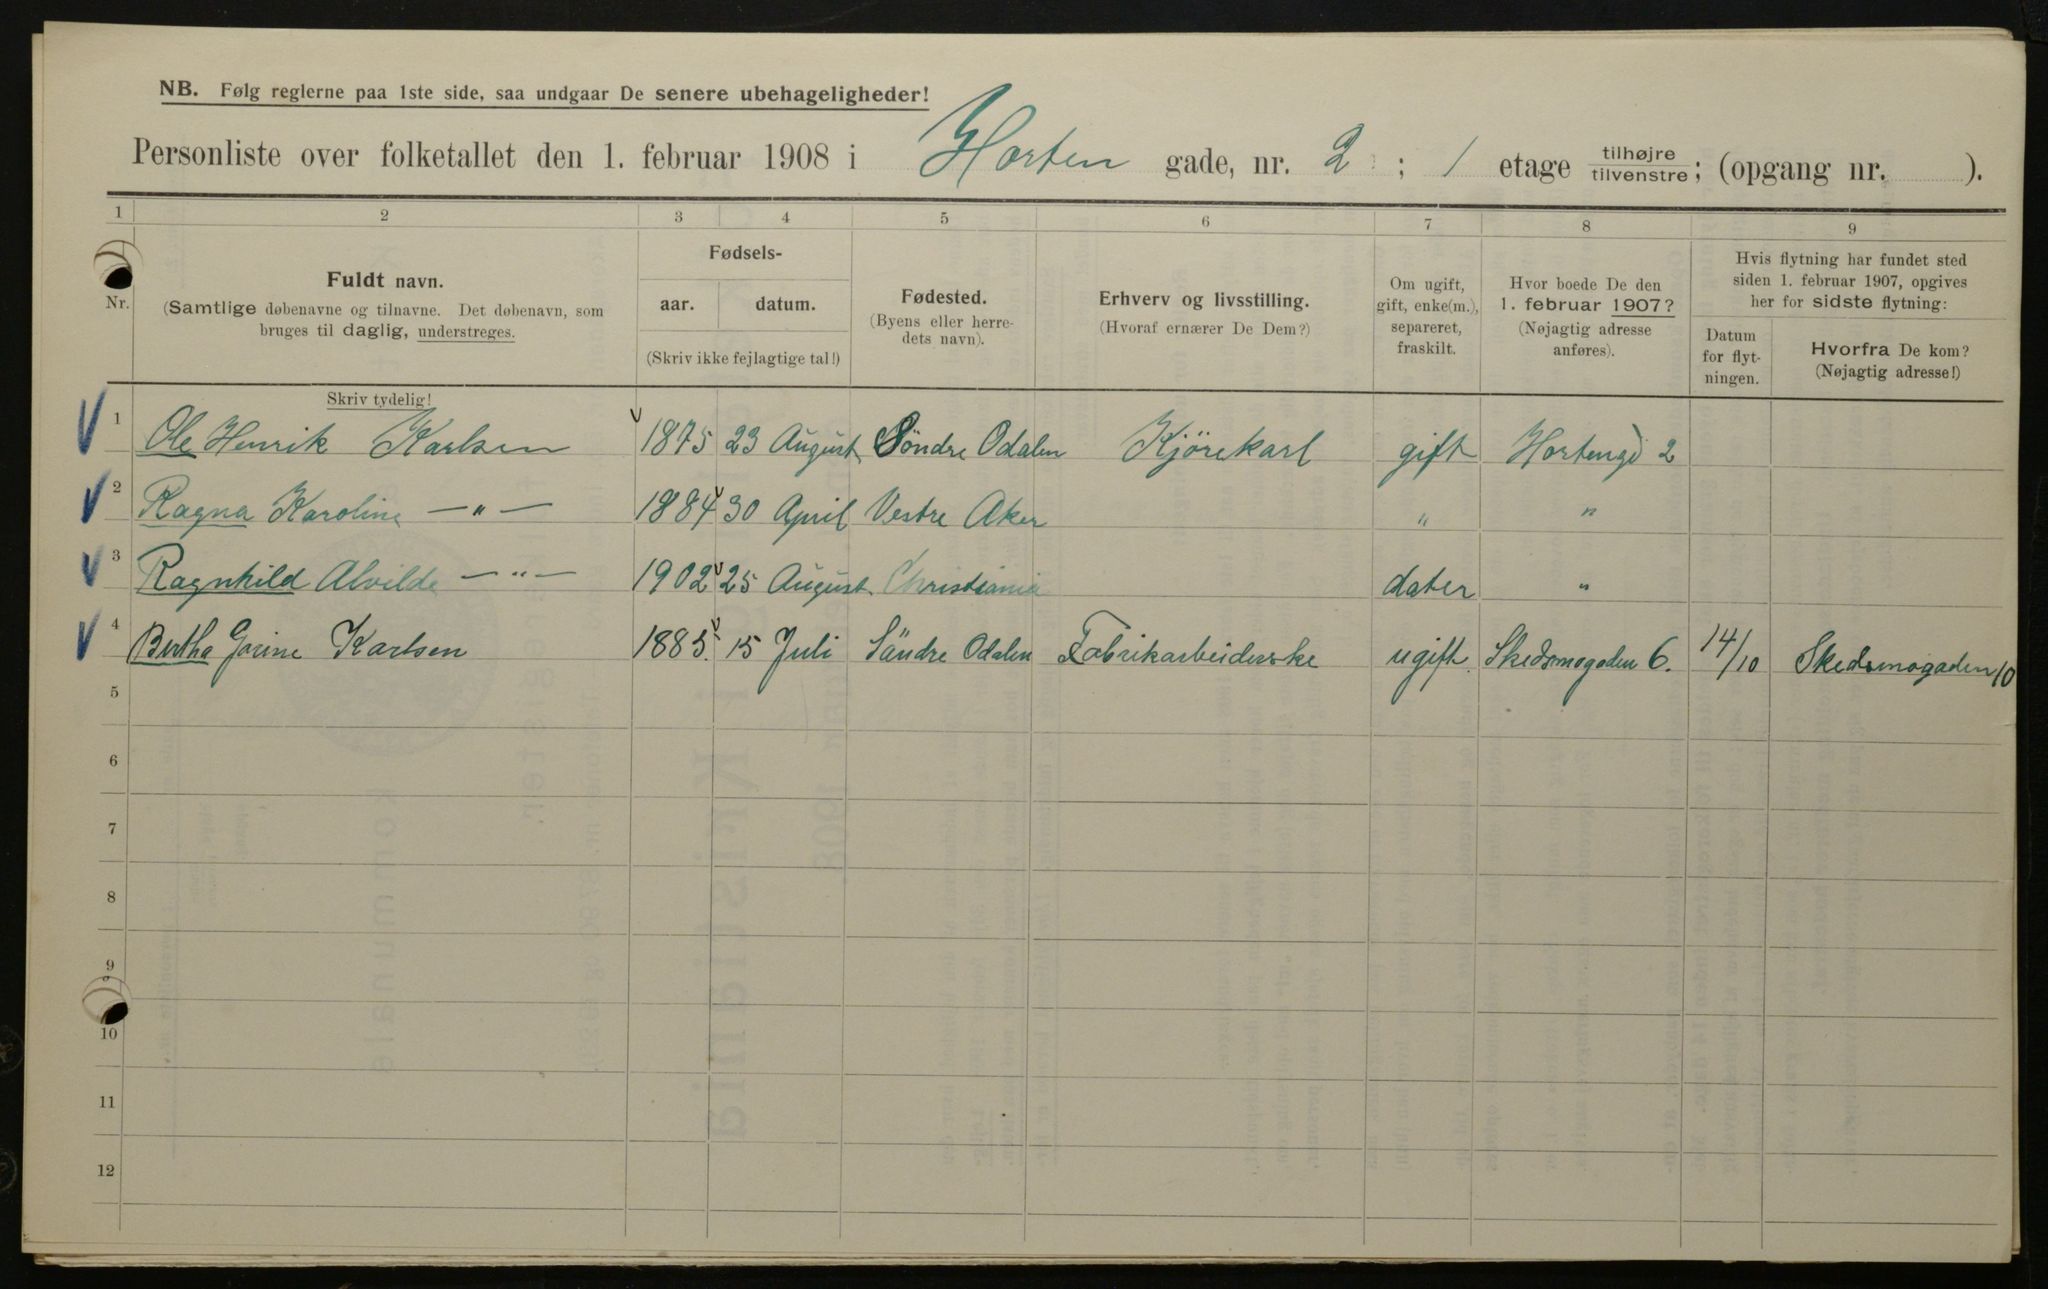 NB. Følg reglerne paa 1ste side, saa undgaar De senere ubehageligheder!
Personliste over folketallet den 1. februar 1908 i Horten gade, nr. 2 ; 1 etage tilhøjre/tilvenstre; (opgang nr. ).
1 2 3 4 5 6 7 8 9
Nr.
Fuldt navn.
(Samtlige døbenavne og tilnavne. Det døbenavn, som
bruges til daglig, understreges.
Skriv tydelig!
Fødsels-
aar. datum.
(Skriv ikke fejlagtige tal!)
Fødested.
(Byens eller herre-
dets navn).
Erhverv og livsstilling.
(Hvoraf ernærer De Dem?)
Om ugift,
gift, enke(m.),
separeret,
fraskilt.
Hvor boede De den
1. februar 1907?
(Nøjagtig adresse
anføres).
Hvis flytning har fundet sted
siden 1. februar 1907, opgives
her for sidste flytning:
Datum
for flyt-
ningen.
Hvorfra De kom?
(Nøjagtig adresse!)
1 Ole Henrik Karlsen 1875 23 August Söndre Odalen Kjörekarl gift Hortengd 2
2 Ragna Karoline — " — 1884 30 April Vestre Aker " "
3 Ragnhild Alvilde — " — 1902 25 August Christiania dater "
4 Bertha Gorine Karlsen 1885. 15 Juli Söndre Odalen Fabrikarbeiderske ugift. Skedsmogaden 6. 14/10 Skedsmogaden 10
5
6
7
8
9
10
11
12